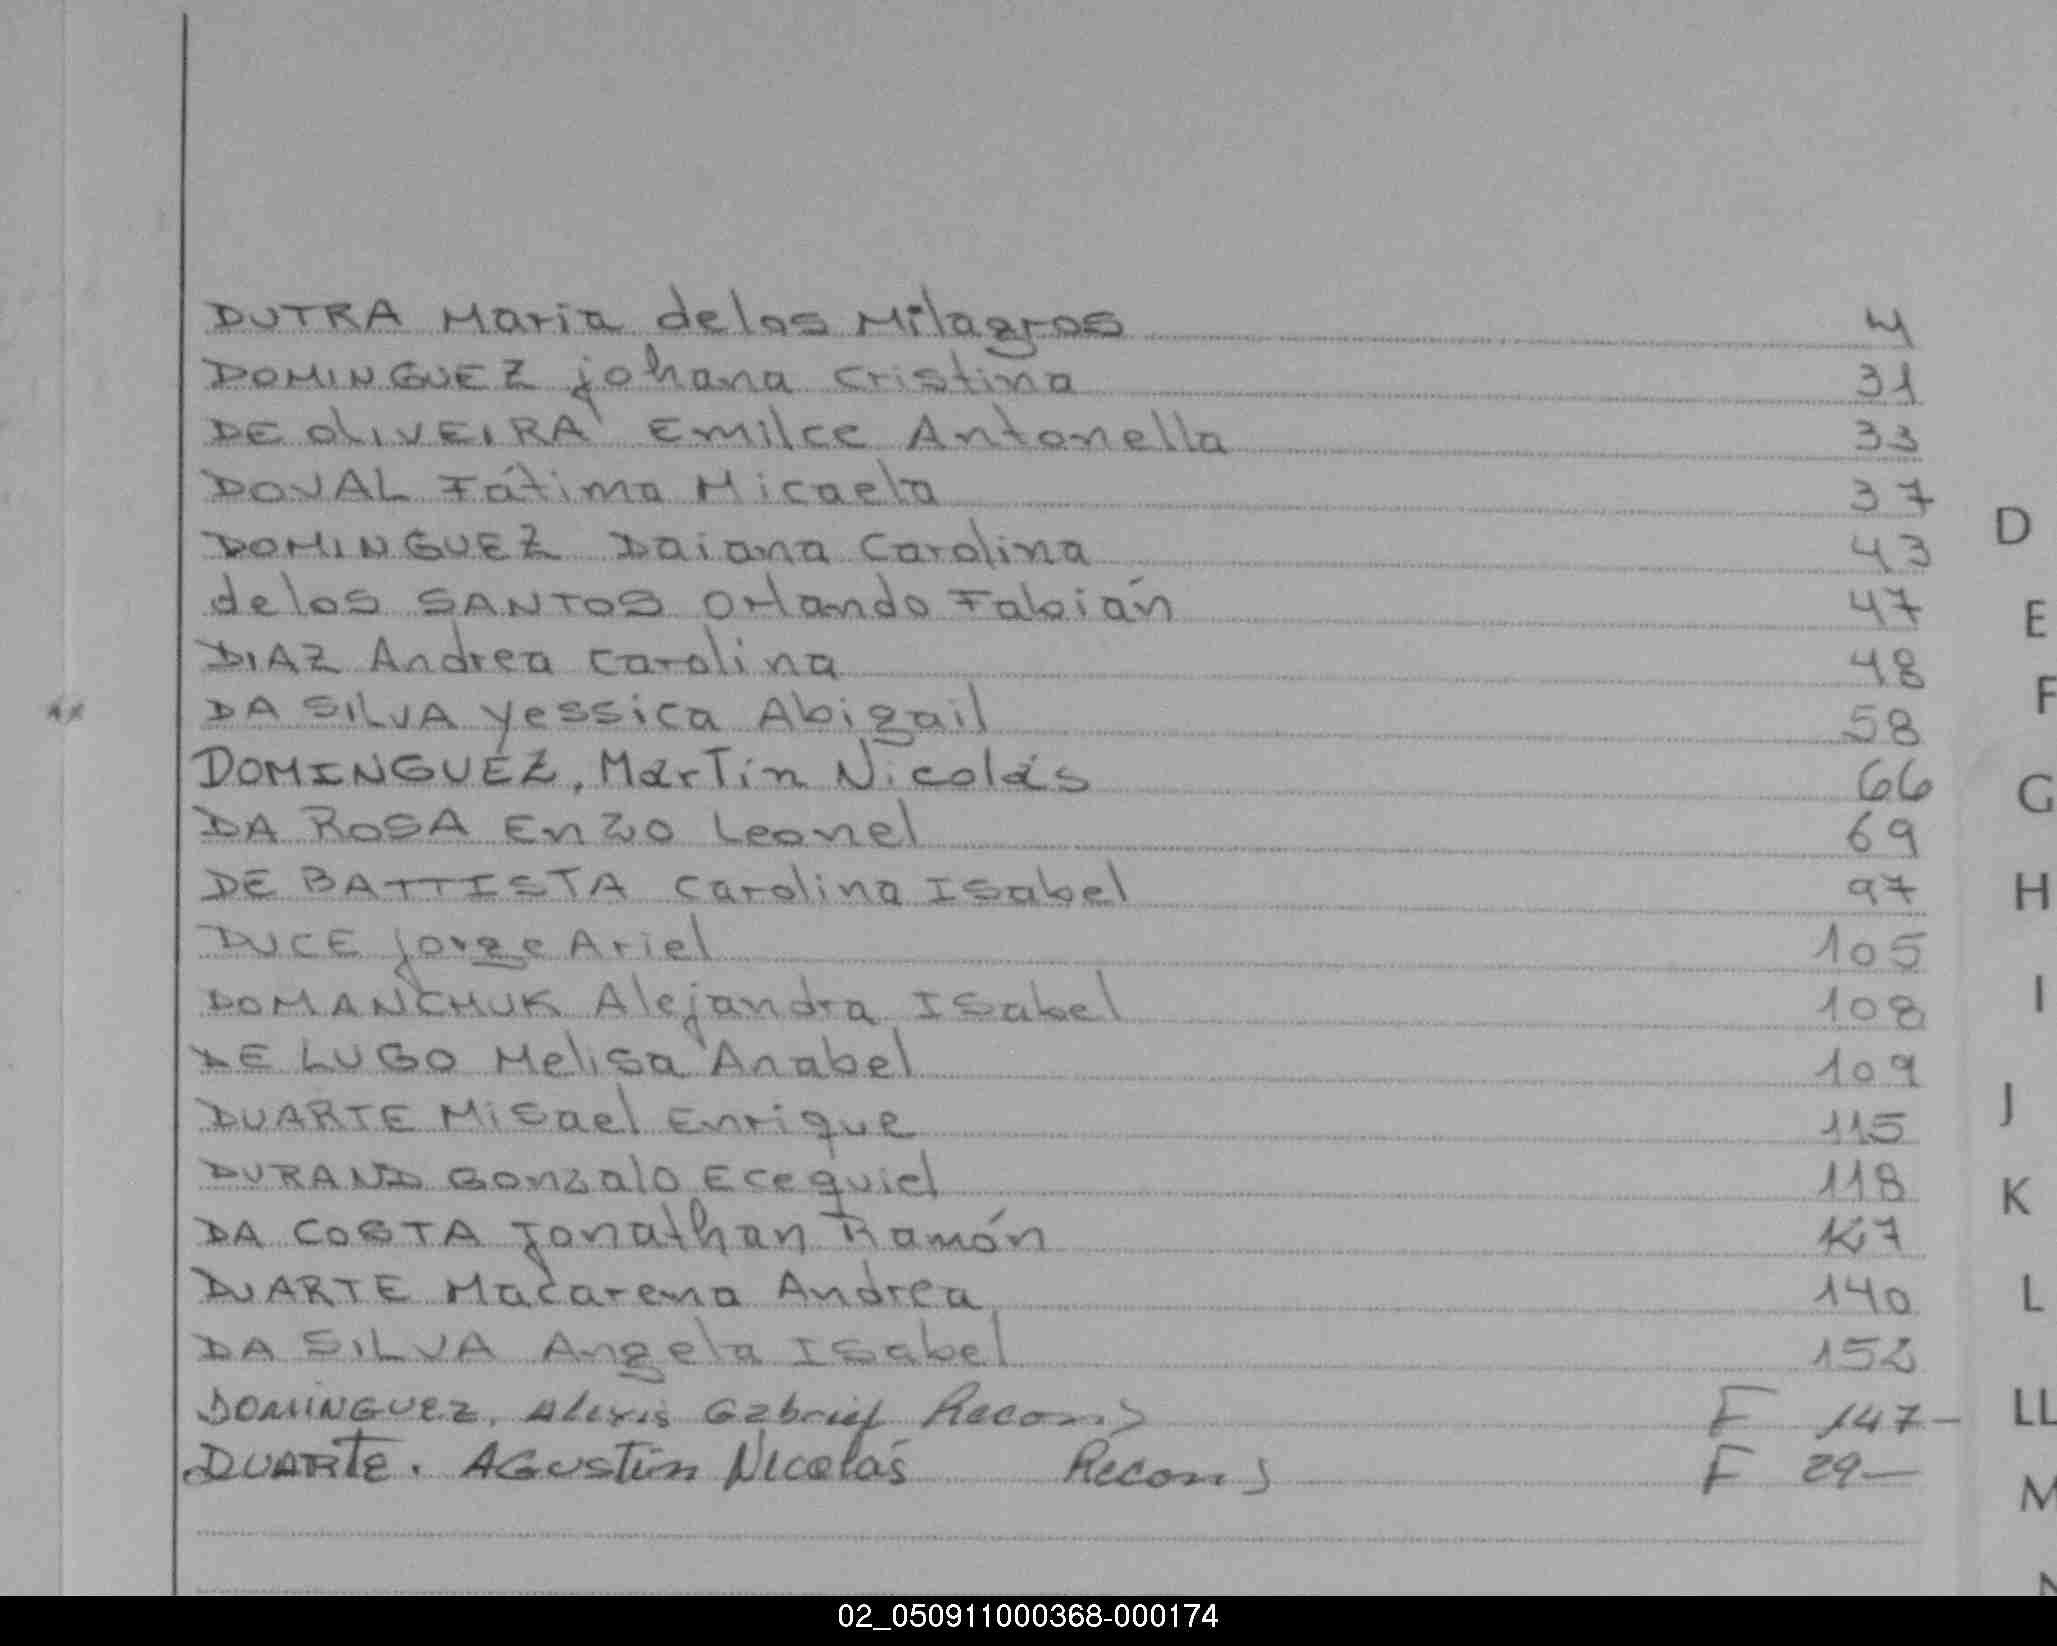 DUTRA Maria de los Milagros 4
DOMINGUEZ johana cristina 31
DE OLIVEIRA Emilce Antonella 33
DOVAL Fátima Micaela 37
DOMINGUEZ Daiana Carolina 43
de los SANTOS Orlando Fabián 47
DIAZ Andrea Carolina 48
DA SILVA Yessica Abigail 58
DOMINGUEZ, Martín Nicolás 66
DA ROSA Enzo Leonel 69
DE BATTISTA Carolina Isabel 97
DUCE Jorge Ariel 105
DOMANCHUK Alejandra Isabel 108
DE LUGO Melisa Anabel 109
DUARTE Misael Enrique 115
DURAND Gonzalo Ecequiel 118
DA COSTA Jonathan Ramón
DUARTE Macarena Andrea 140
DA SILVA Angela Isabel 152
DOMINGUEZ, Alexis Gabriel Recon. F 147-
DUARTE. Agustín Nicolás Recon. F 29-
D
E
F
G
H
I
J
K
L
LL
M
N
02_050911000368-000174